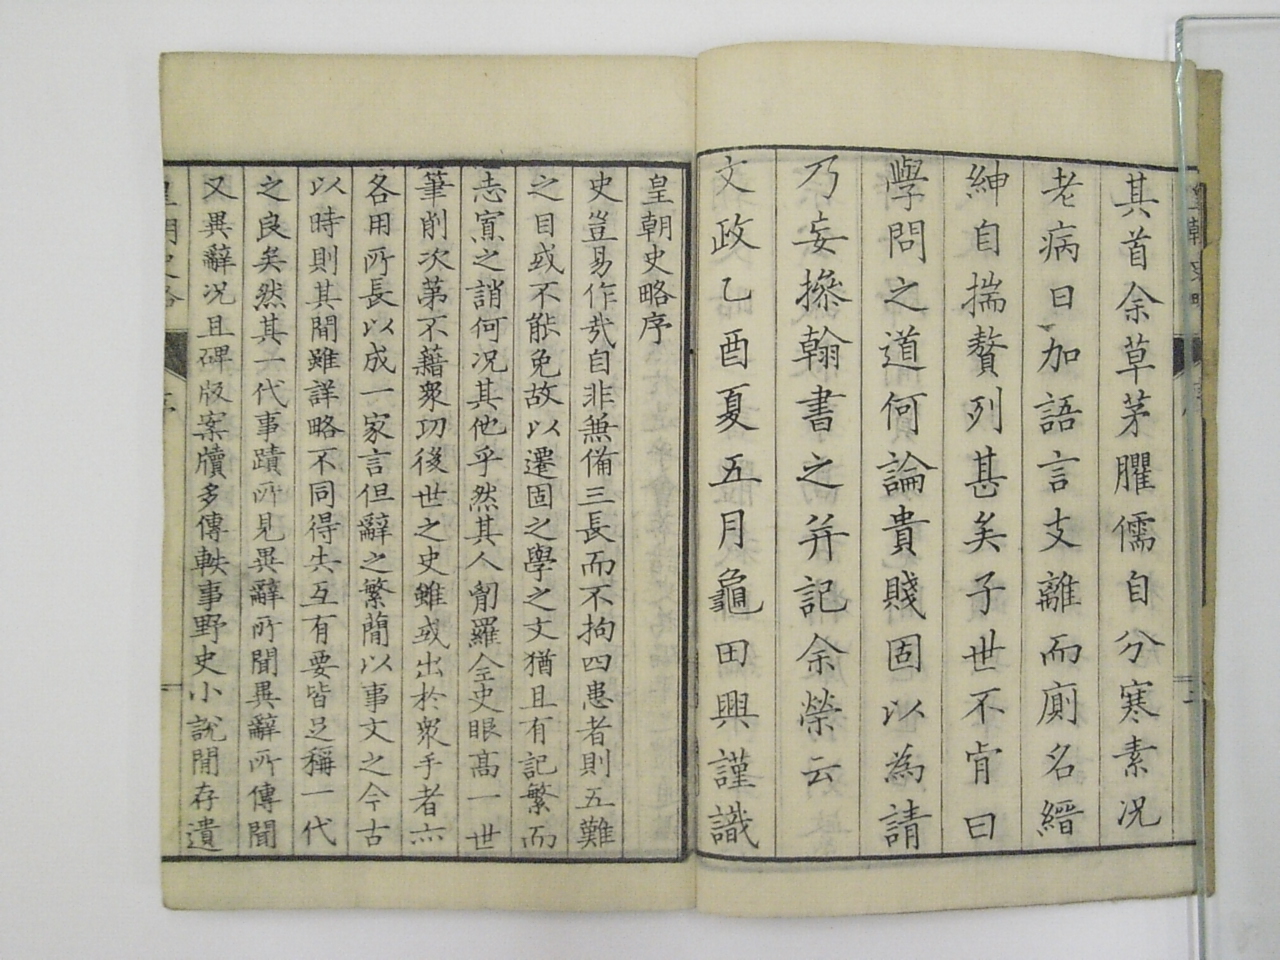 其首余草茅臞儒自分寒素况
老病日加語言支離而廁名縉
紳自揣贅列甚矣子世不肯曰
學問之道何論貴賤固以為請
乃妄摻翰書之并記余榮云
文政乙酉夏五月龜田興謹識
皇朝史略序
史豈易作哉自非無備三長而不拘四患者則五難
之目或不能免故以遷固之學之文猶且有記繁而
志寡之誚何况其他乎然其人匈羅全史眼高一世
筆削次第不藉衆功後世之史雖或出於衆手者亦
各用所長以成一家言但辭之繁蕳以事文之今古
以時則其間雖詳略不同得失互有要皆足稱一代
之良矣然其一代事蹟所見異辭所聞異辭所傳聞
又異辭况且碑版案牘多傳軼事野史小說閒存遺
皇朝史略